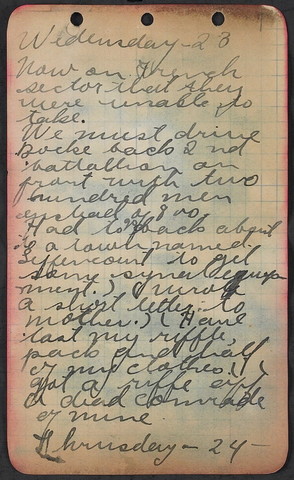 Wedensday - 23
Now on French
sector that they
were unable to
take.
We must drive
Bocke back 2 nd
battallion on
front with two
hundred men
instead of 800
Had to back
to a town named
to get
some signal equip
ment.) (wrote
a short letter to
mother.) (Have
lost my riffe,
pack and half
of my clothes.) (
Got a riffe off
a dead comrade
of mine
Thrusday - 24 -